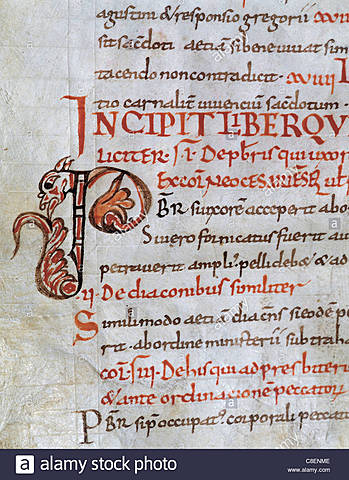 agustini & responsio gregorii xviii
sit sacdoti aetiā si bene vivat sim
tacendo non contradicit · xviiii
tio carnalit viventiū sacdotum ·
INCIPIT LIBER QV
LICITER · I · De pbris qui uxor
EX COÑ NEOCESARIESE
PBR si uxorē acceperit abor
Si vero fornicatus fuerit aut
petraverit ampli pelli debē & ad
II · De diaconibus similiter
Simili modo aetiā diacns si eodē
rit · ab ordine ministerii subtraha
COÑ · III · De his qui ad presbiteriū
& ante ordinationē peccatorū
PBR si p occupat corporali peccato
alamy stock photo
C8ENME
www.alamy.com